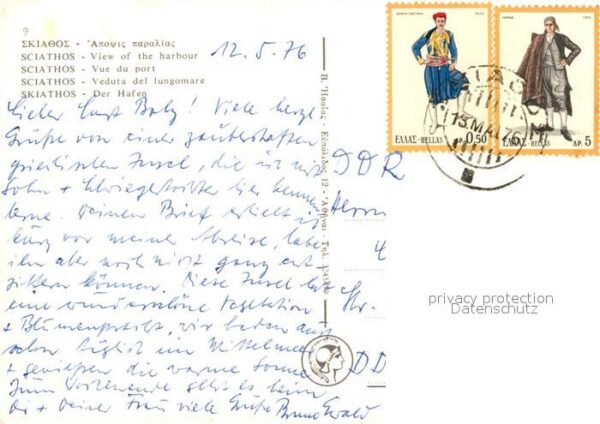 9
ΣΚΙΑΘΟΣ - Ἄποψις παραλίας
SCIATHOS - View of the harbour
SCIATHOS - Vue du port
SCIATHOS - Veduta del lungomare
SKIATHOS - Der Hafen
12.5.76
Lieber Curt Boby! Viele herzl.
Grüße von einer zauberhaften
griechischen Insel, die ich mit
Sohn + Schwiegertochter hier kennen
lerne. Deinen Brief erhielt ich
kurz vor meiner Abreise, habe
ihn aber noch nicht ganz ent-
ziffern können. Diese Insel hat
eine wunderschöne Vegetation
+ Blumenpracht, wir baden auch
schon täglich im Mittelmeer
+ genießen die warme Sonne
Zum Wochenende geht es heim
Dir + Deiner Frau viele Grüße Bruno Ewald
DDR
Herrn
DD
ΕΛΛΑΣ-HELLAS 0.50
1972
ΕΛΛΑΣ-HELLAS ΔΡ. 5
13 MAI 76
privacy protection
Datenschutz